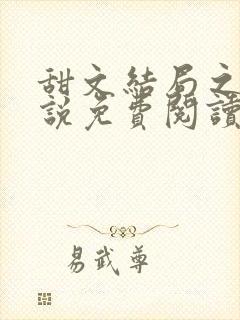 甜文結局之
説免費閱讀
易武尊